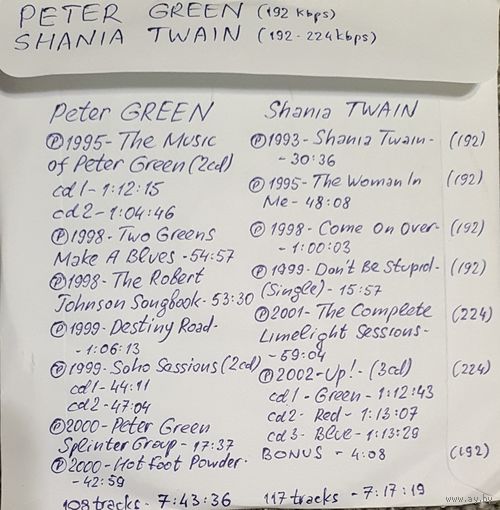 PETER GREEN (192 kbps)
SHANIA TWAIN (192-224kbps)
Peter GREEN
Ⓟ1995-The Music
of Peter Green (2cd)
cd1-1:12:15
cd2-1:04:46
Ⓟ1998-Two Greens
Make A Blues-54:57
Ⓟ1998-The Robert
Johnson Songbook-53:30
Ⓟ1999-Destiny Road-
-1:06:13
Ⓟ1999-Soho Sassions (2cd)
cd1-44:11
cd2-47:04
Ⓟ2000-Peter Green
Splinter Group-17:37
Ⓟ2000-Hot Foot Powder-
-42:59
108 tracks-7:43:36
Shania TWAIN
Ⓟ1993-Shania Twain- (192)
-30:36
Ⓟ1995-The Woman In (192)
Me-48:08
Ⓟ1998-Come On Over- (192)
-1:00:03
Ⓟ1999-Don't Be Stupid- (192)
(Single)-15:57
Ⓟ2001-The Complete (224)
Limelight Sessions-
-59:04
Ⓟ2002-Up!-(3cd) (224)
cd1-Green-1:12:43
cd2-Red-1:13:07
cd3-Blue-1:13:29
BONUS-4:08 (192)
117 tracks-7:17:19
www.ay.by